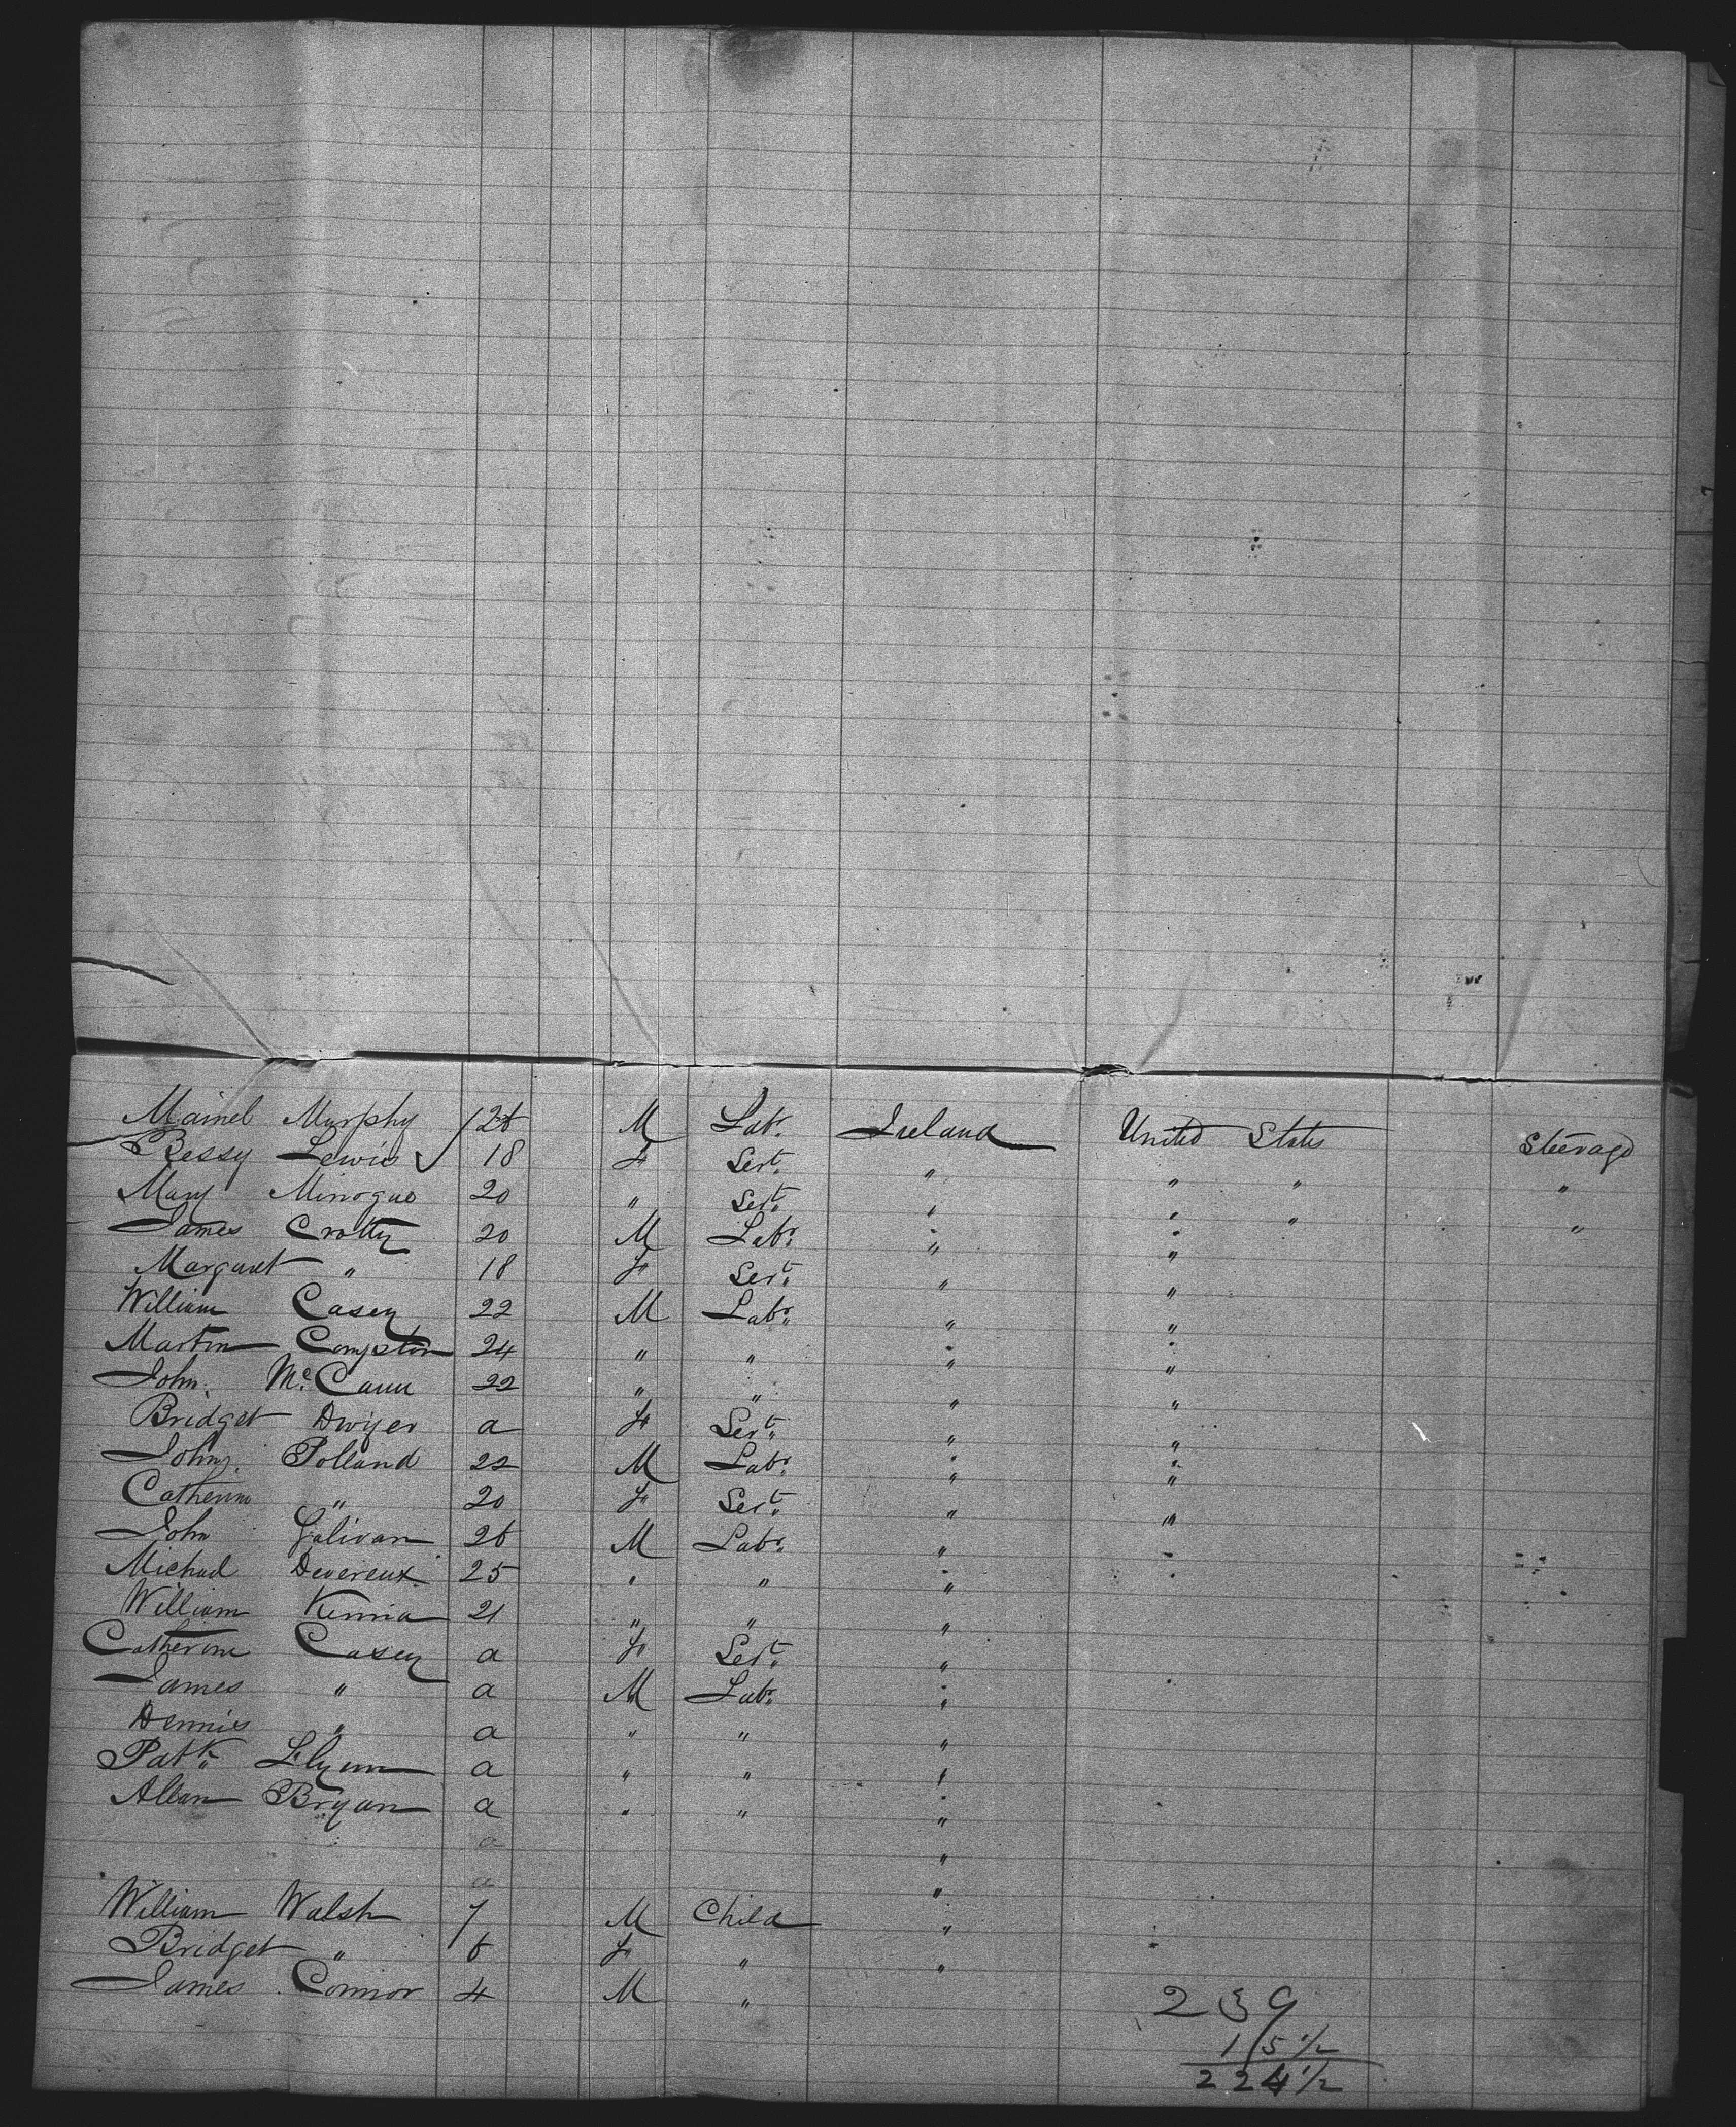 Murphy 26 M Labr. Ireland United States Steerage
Bessy Lewis 18 F Sert. " " " "
Mary Minogue 20 " Sert. " " " "
James Crotty 20 M Labr. " "
Margaret " 18 F Sert. " "
William Casey 22 M Labr. " "
Martin 24 " " " "
John McCann 22 " " " "
Bridget Dwyer a F Sert. " "
John Polland 22 M Labr. " "
Catherine " 20 F Sert. " "
John Galivan 26 M Labr. "
Michael Devereux 25 " " "
William 21 " " "
Catherine Casey a F Sert. "
James " a M Labr. "
Dennis " a " " "
Patk. Flynn a " " "
Allan Bryan a " " "
a "
a "
William Walsh 7 M Child "
Bridget " 6 F " "
James Connor 4 M "
239
15 1/2
224 1/2